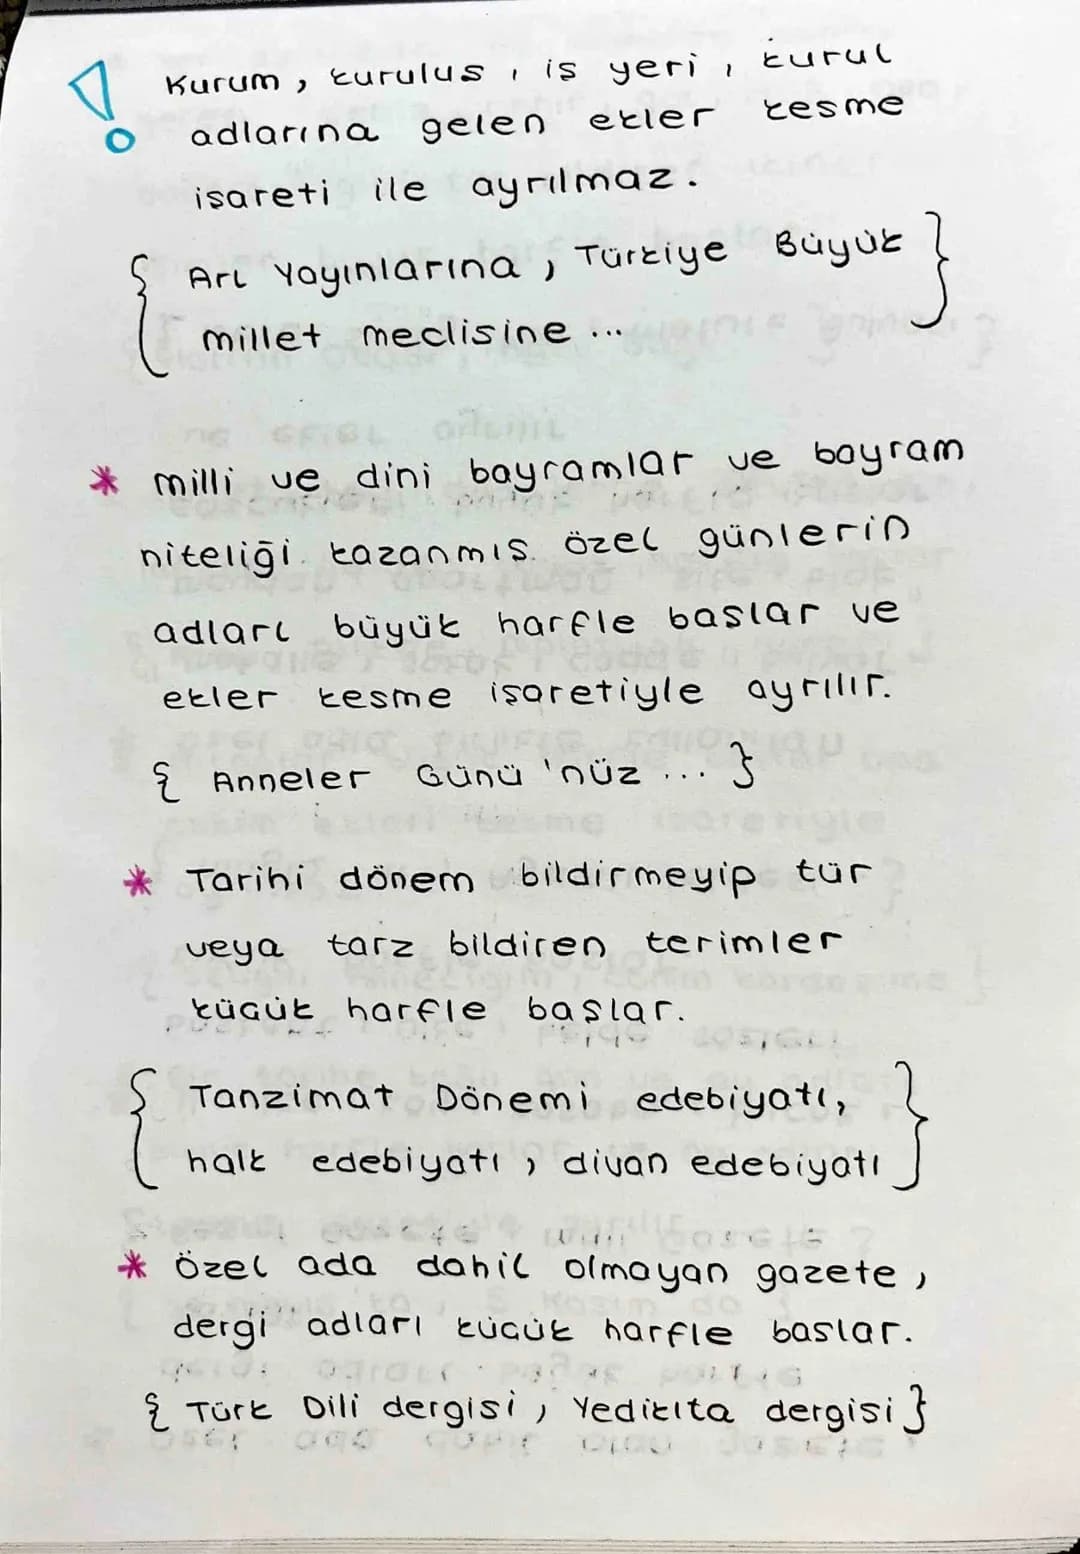 Kurum, kuruluş, iş yeri, kurul
adlarına gelen ekler kesme
işareti ile ayrılmaz.
{ Arı Yayınlarına, Türkiye Büyük }
millet meclisine ...
* milli ve dini bayramlar ve bayram
niteliği kazanmış özel günlerin
adları büyük harfle başlar ve
ekler kesme işaretiyle ayrılır.
{ Anneler Günü'nüz ... }
* Tarihi dönem bildirmeyip tür
veya tarz bildiren terimler
küçük harfle başlar.
{ Tanzimat Dönemi edebiyatı,
halk edebiyatı, divan edebiyatı }
* Özel ada dahil olmayan gazete,
dergi adları küçük harfle başlar.
{ Türk Dili dergisi, Yedikıta dergisi }